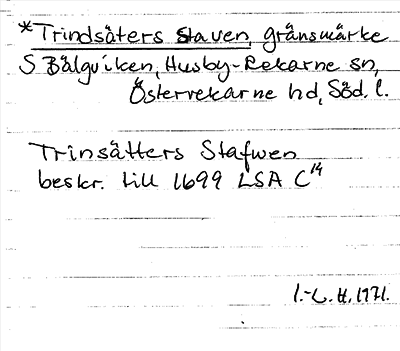 *Trindsäters staven, gränsmärke
S Bälgviken, Husby-Rekarne sn,
Österrekarne hd, Söd. l.
Trinsätters Stafwen
beskr. till 1699 LSA C14
I.-L. H. 1971.